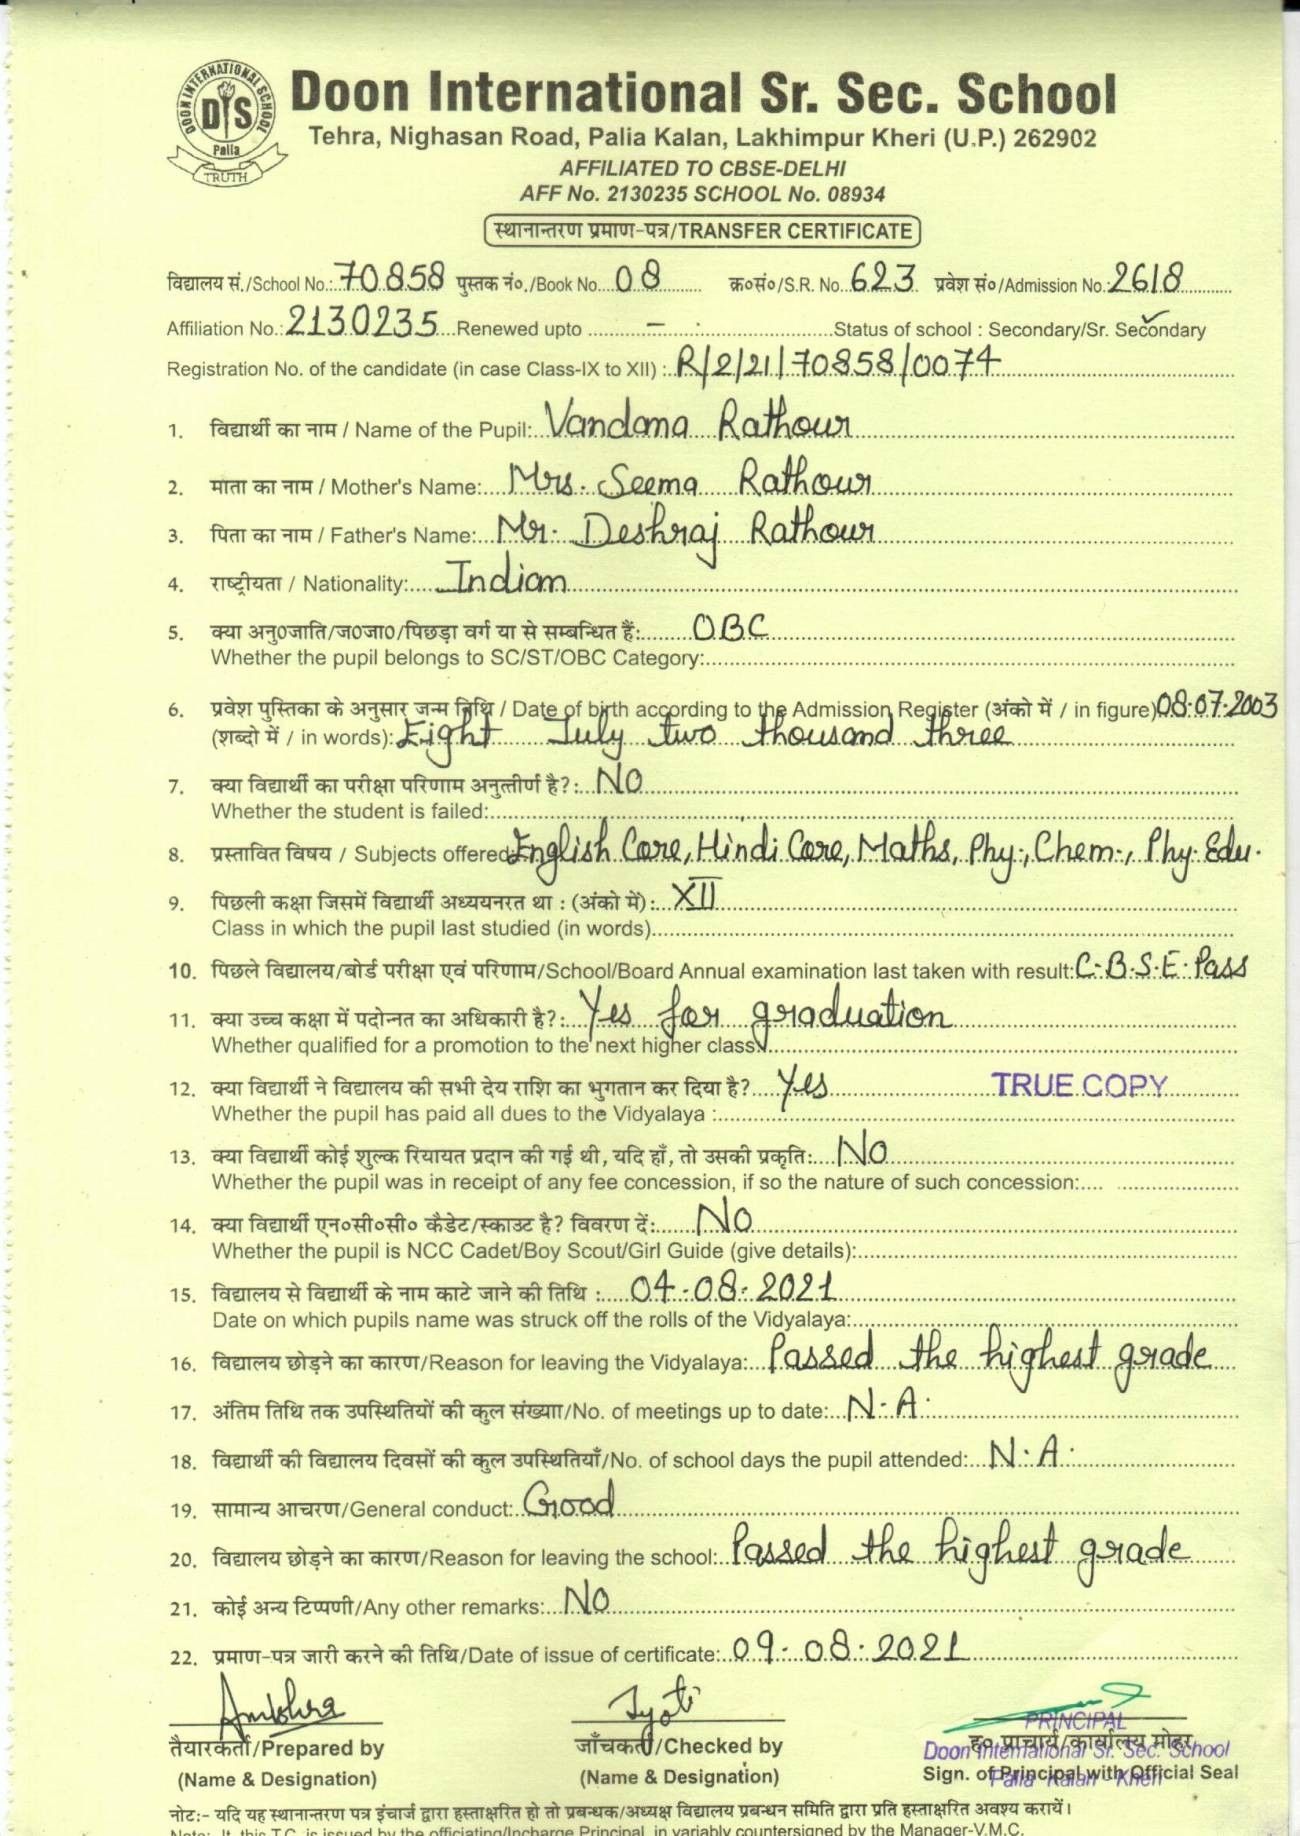 DOON INTERNATIONAL SCHOOL
DIS
Palia
TRUTH
Doon International Sr. Sec. School
Tehra, Nighasan Road, Palia Kalan, Lakhimpur Kheri (U.P.) 262902
AFFILIATED TO CBSE-DELHI
AFF No. 2130235 SCHOOL No. 08934
स्थानान्तरण प्रमाण-पत्र/TRANSFER CERTIFICATE
विद्यालय सं./School No.: 70858 पुस्तक नं०./Book No. 08 क्र०सं०/S.R. No. 623 प्रवेश सं०/Admission No.: 2618
Affiliation No.: 2130235 Renewed upto - Status of school : Secondary/Sr. Secondary
Registration No. of the candidate (in case Class-IX to XII) : R/2/21/70858/0074
1. विद्यार्थी का नाम / Name of the Pupil: Vandana Rathour
2. माता का नाम / Mother's Name: Mrs. Seema Rathour
3. पिता का नाम / Father's Name: Mr. Deshraj Rathour
4. राष्ट्रीयता / Nationality: Indian
5. क्या अनु०जाति/ज०जा०/पिछड़ा वर्ग या से सम्बन्धित हैं: OBC
Whether the pupil belongs to SC/ST/OBC Category:
6. प्रवेश पुस्तिका के अनुसार जन्म तिथि / Date of birth according to the Admission Register (अंको में / in figure) 08.07.2003
(शब्दो में / in words): Eight July two thousand three
7. क्या विद्यार्थी का परीक्षा परिणाम अनुत्तीर्ण है?: NO
Whether the student is failed:
8. प्रस्तावित विषय / Subjects offered: English Core, Hindi Core, Maths, Phy., Chem., Phy. Edu.
9. पिछली कक्षा जिसमें विद्यार्थी अध्ययनरत था : (अंको में): XII
Class in which the pupil last studied (in words)
10. पिछले विद्यालय/बोर्ड परीक्षा एवं परिणाम/School/Board Annual examination last taken with result: C.B.S.E. Pass
11. क्या उच्च कक्षा में पदोन्नत का अधिकारी है?: Yes for graduation
Whether qualified for a promotion to the next higher class:
12. क्या विद्यार्थी ने विद्यालय की सभी देय राशि का भुगतान कर दिया है? Yes TRUE COPY
Whether the pupil has paid all dues to the Vidyalaya :
13. क्या विद्यार्थी कोई शुल्क रियायत प्रदान की गई थी, यदि हाँ, तो उसकी प्रकृति: No
Whether the pupil was in receipt of any fee concession, if so the nature of such concession:
14. क्या विद्यार्थी एन०सी०सी० कैडेट/स्काउट है? विवरण दें: No
Whether the pupil is NCC Cadet/Boy Scout/Girl Guide (give details):
15. विद्यालय से विद्यार्थी के नाम काटे जाने की तिथि : 04.08.2021
Date on which pupils name was struck off the rolls of the Vidyalaya:
16. विद्यालय छोड़ने का कारण/Reason for leaving the Vidyalaya: Passed the highest grade
17. अंतिम तिथि तक उपस्थितियों की कुल संख्या/No. of meetings up to date: N.A.
18. विद्यार्थी की विद्यालय दिवसों की कुल उपस्थितियाँ/No. of school days the pupil attended: N.A.
19. सामान्य आचरण/General conduct: Good
20. विद्यालय छोड़ने का कारण/Reason for leaving the school: Passed the highest grade
21. कोई अन्य टिप्पणी/Any other remarks: No
22. प्रमाण-पत्र जारी करने की तिथि/Date of issue of certificate: 09.08.2021
Jyoti
PRINCIPAL
तैयारकर्ता/Prepared by जाँचकर्ता/Checked by ह०. प्राचार्य/कार्यालय मोहर
Doon International Sr. Sec. School
(Name & Designation) (Name & Designation) Sign. of Principal with Official Seal
Palia Kalan Kheri
नोट:- यदि यह स्थानान्तरण पत्र इंचार्ज द्वारा हस्ताक्षरित हो तो प्रबन्धक/अध्यक्ष विद्यालय प्रबन्धन समिति द्वारा प्रति हस्ताक्षरित अवश्य करायें।
Note:- It, this T.C. is issued by the officiating/Incharge Principal, in variably countersigned by the Manager-V.M.C.